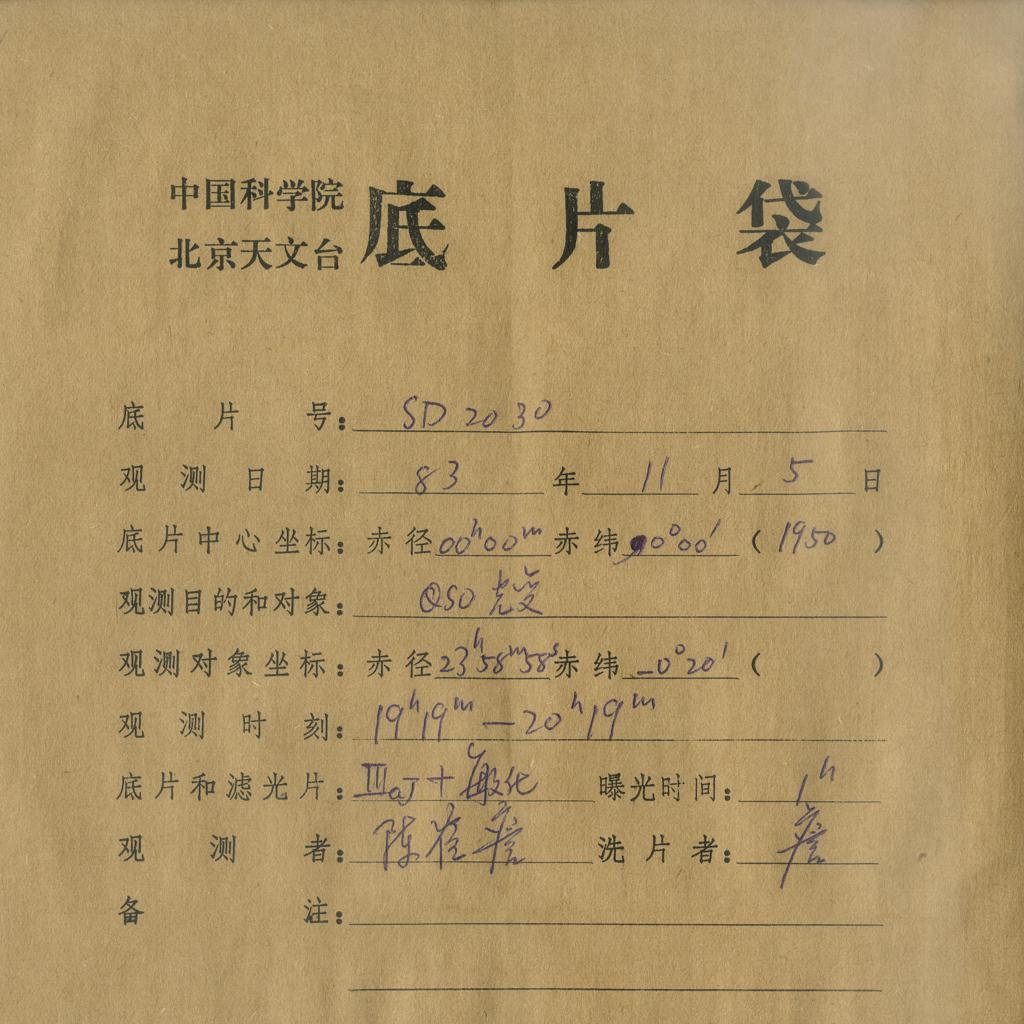 中国科学院
北京天文台
底片袋
底片号: SD 2030
观测日期: 83 年 11 月 5 日
底片中心坐标: 赤径 00ʰ00ᵐ 赤纬 00°00′ (1950)
观测目的和对象: QSO 光变
观测对象坐标: 赤径 23ʰ58ᵐ58ˢ 赤纬 -0°20′ ( )
观测时刻: 19ʰ19ᵐ — 20ʰ19ᵐ
底片和滤光片: IIIaJ + 敏化 曝光时间: 1ʰ
观测者: 陈 詹 洗片者: 詹
备注: